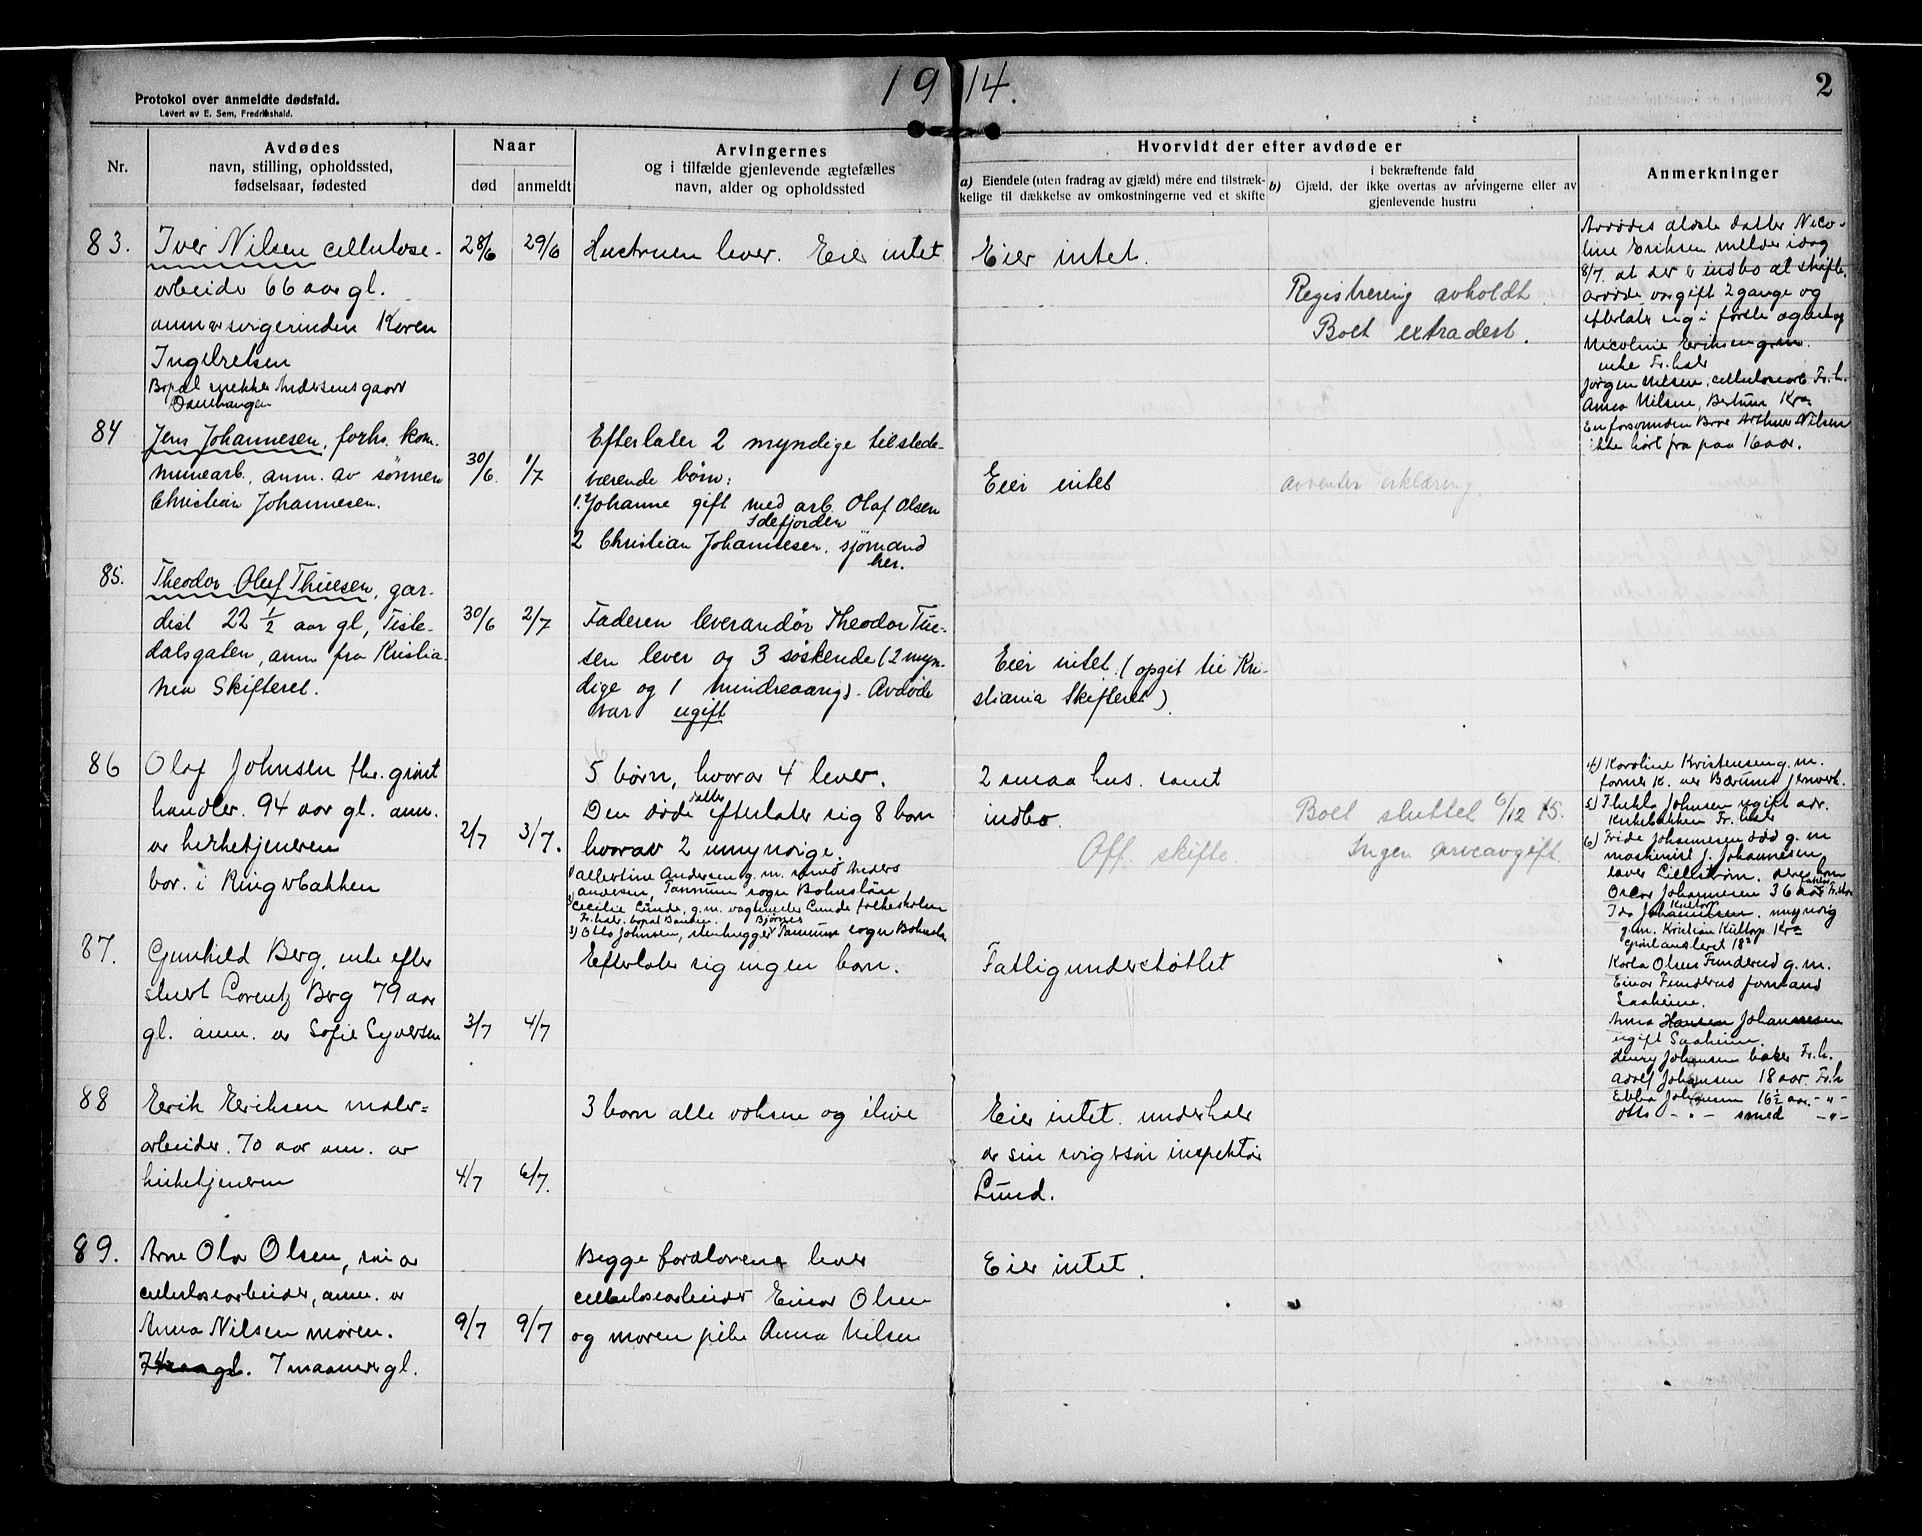 1914.
2
Protokol over anmeldte dødsfald.
Levert av E. Sem, Fredrikshald.
Nr.
Avdødes
navn, stilling, opholdssted,
fødselsaar, fødested
Naar
død
anmeldt
Arvingernes
og i tilfælde gjenlevende ægtefælles
navn, alder og opholdssted
Hvorvidt der efter avdøde er
a) Eiendele (uten fradrag av gjæld) mere end tilstræk-
kelige til dækkelse av omkostningerne ved et skifte
i bekræftende fald
b) Gjæld, der ikke overtas av arvingerne eller av
gjenlevende hustru
Anmerkninger
83.
Iver Nilsen cellulose-
arbeider 66 aar gl.
anm av svigerinden Karen
Ingebretsen
Bopæl snekker Andersens gaard
28/6
29/6
Hustruen lever. Eier intet
Eier intet.
Registrering avholdt.
Boet extradert.
Avdødes ældste datter Nico-
line Eriksen melder idag
8/7 at der er indbo at skifte.
Avdøde var gift 2 gange og
efterlater sig i første egteskap
Nicoline Eriksen
enke Fr.hald
Jørgen Nilsen, cellulosearb. Fr.h.
Anna Nilsen, Kra
En forsvunden Bror Arthur Nilsen
ikke hørt fra paa 16 aar.
84
Jens Johannesen, forhv. kom-
munearb., anm. av sønnen
Christian Johannesen.
30/6.
1/7
Efterlater 2 myndige tilstede-
værende børn:
1. Johanne gift med arb. Olaf Olsen
Idefjorden
2 Christian Johannesen. sjømand
her.
Eier intet
avventer erklæring.
85.
Theodor Oluf Thuesen, gar-
dist 22 1/2 aar gl, Tiste-
dalsgaten, anm fra Kristia-
nia Skifteret.
30/6
2/7
Faderen leverandør Theodor Tue-
sen lever og 3 søskende (2 myn-
dige og 1 mindreaarig). Avdøde
var ugift
Eier intet. (opgit til Kri-
stiania Skifteret)
86
Olaf Johnsen fhv. grønt
handler. 94 aar gl. anm.
av kirketjeneren
bor. i Ringsbakken
2/7
3/7.
5 børn, hvorav 4 lever.
Den døde datter efterlater sig 8 børn
hvorav 2 umyndige.
1) Albertine Andersen g.m. Anders
Andersen, Tannum sogn Bohuslän
2) Cecilie Lunde, g.m. vagtmester Lunde folkeskolen
Fr.hald. bopæl Banken. Bjørnes
3) Otto Johnsen, stenhugger Tannum sogn Bohuslän
2 smaa hus. samt
indbo.
Off. skifte
Boet sluttet 6/12 15.
Ingen arveavgift.
4) Karoline Kristensen g.m.
former K. ved Bærums jernverk.
5) Thekla Johnsen ugift adr.
Kirkebakken Fr.hald
6) Fride Johannesen død g.m
maskinist J. Johannesen
lever Lillestrøm. dere børn
Oscar Johannesen 36 aar Fr.hald
Ida Johannesen. myndig
g.m. Kristian Kultorp Kra
Karla Olsen Funderud g.m.
Einar Funderud formand
Saaheim.
Anna Hansen Johannesen
ugift Saaheim.
Henry Johansen baker Fr.h.
Adolf Johansen 18 aar. Fr.h
Ebba Johansen 16 1/2 aar. -"-
Otto -"- smed -"-
87.
Gunhild Berg, enke efter
Lorentz Berg 79 aar
gl. anm. av Sofie Syversen
3/7
4/7
Efterlater sig ingen barn.
Fattigunderstøttet
88
Erik Eriksen maler=
arbeider. 70 aar anm. av
kirketjeneren
4/7
6/7.
3 barn alle voksne og ilive
Eier intet. underholdt
av sin svigersøn inspektør
Lund.
89.
Arne Ola Olsen, søn av
cellulosearbeider, anm. av
Anna Nilsen moren.
74 aar gl. 7 maaneder gl.
9/7
9/7
Begge forældrene lever
cellulosearbeider Einar Olsen
og moren pike Anna Nilsen
Eier intet.